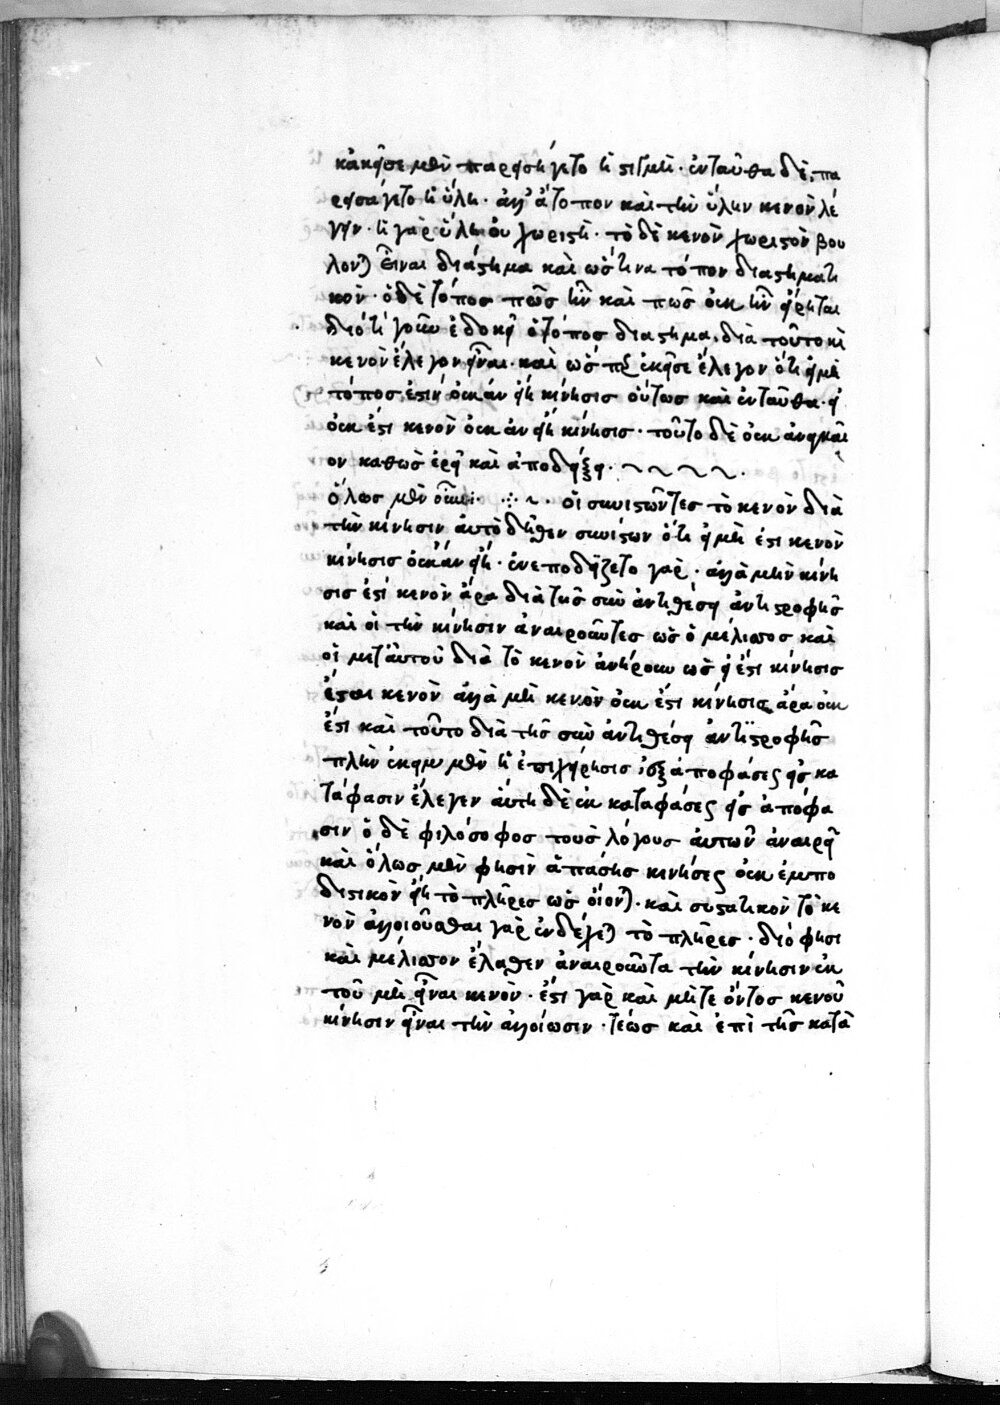 κἀκεῖσε μὲν παρεισήγετο ἡ στιγμὴ · ἐνταῦθα δὲ, πα
ρεισάγετο ἡ ὕλη · ἀλλ' ἄτοπον καὶ τὴν ὕλην κενὸν λέ
γειν · ἡ γὰρ ὕλη οὐ χωριστὴ · τὸ δὲ κενὸν χωριστὸν βού
λονται εἶναι διάστημα καὶ ὥς τινα τόπον διαστηματι
κόν · ὁ δὲ τόπος πῶς ἦν καὶ πῶς οὐκ ἦν εἴρηται
διότι γοῦν ἐδόκει ὁ τόπος διάστημα, διὰ τοῦτο καὶ
κενὸν ἔλεγον εἶναι · καὶ ὥσπερ ἐκεῖσε ἔλεγον ὅτι εἰ μὴ
τόπος ἐστὶν οὐκ ἂν εἴη κίνησις οὕτως καὶ ἐνταῦθα · εἰ
οὐκ ἔστι κενὸν οὐκ ἂν εἴη κίνησις · τοῦτο δὲ οὐκ ἀναγκαῖ
ον καθὼς ἐρεῖ καὶ ἀποδείξει ·
ὅλως μὲν οὖν · οἱ συνιστῶντες τὸ κενὸν διὰ
τὴν κίνησιν αὐτὸ δῆθεν συνίστων ὅτι εἰ μὴ ἔστι κενὸν
κίνησις οὐκ ἂν εἴη · ἐνεποδίζετο γὰρ · ἀλλὰ μὴν κίνη
σις ἔστι κενὸν ἄρα διὰ τῆς σὺν ἀντιθέσει ἀντιστροφῆς
καὶ οἱ τὴν κίνησιν ἀναιροῦντες ὡς ὁ μέλισσος καὶ
οἱ μετ' αὐτοῦ διὰ τὸ κενὸν ἀνῄρουν ὡς εἰ ἔστι κίνησις
ἔσται κενὸν ἀλλὰ μὴ κενὸν οὐκ ἔστι κίνησις ἄρα οὐκ
ἔστι καὶ τοῦτο διὰ τῆς σὺν ἀντιθέσει ἀντιστροφῆς
πλὴν ἐκεῖ μὲν ἡ ἐπιχείρησις ἐξ ἀποφάσεως εἰς κα
τάφασιν ἔλεγεν αὕτη δὲ ἐκ καταφάσεως εἰς ἀπόφα
σιν ὁ δὲ φιλόσοφος τοὺς λόγους αὐτῶν ἀναιρεῖ
καὶ ὅλως μὲν φησὶν ἁπάσης κινήσεως οὐκ ἐμπο
διστικὸν εἴη τὸ πλῆρες ὡς οἴονται · καὶ συστατικὸν τὸ κε
νὸν ἀλλοιοῦσθαι γὰρ ἐνδέχεται τὸ πλῆρες · διό φησι
καὶ μέλισσον ἔλαθεν ἀναιροῦντα τὴν κίνησιν ἐκ
τοῦ μὴ εἶναι κενὸν · ἔστι γὰρ καὶ μήτε ὄντος κενοῦ
κίνησιν εἶναι τὴν ἀλλοίωσιν · τέως καὶ ἐπὶ τῆς κατὰ